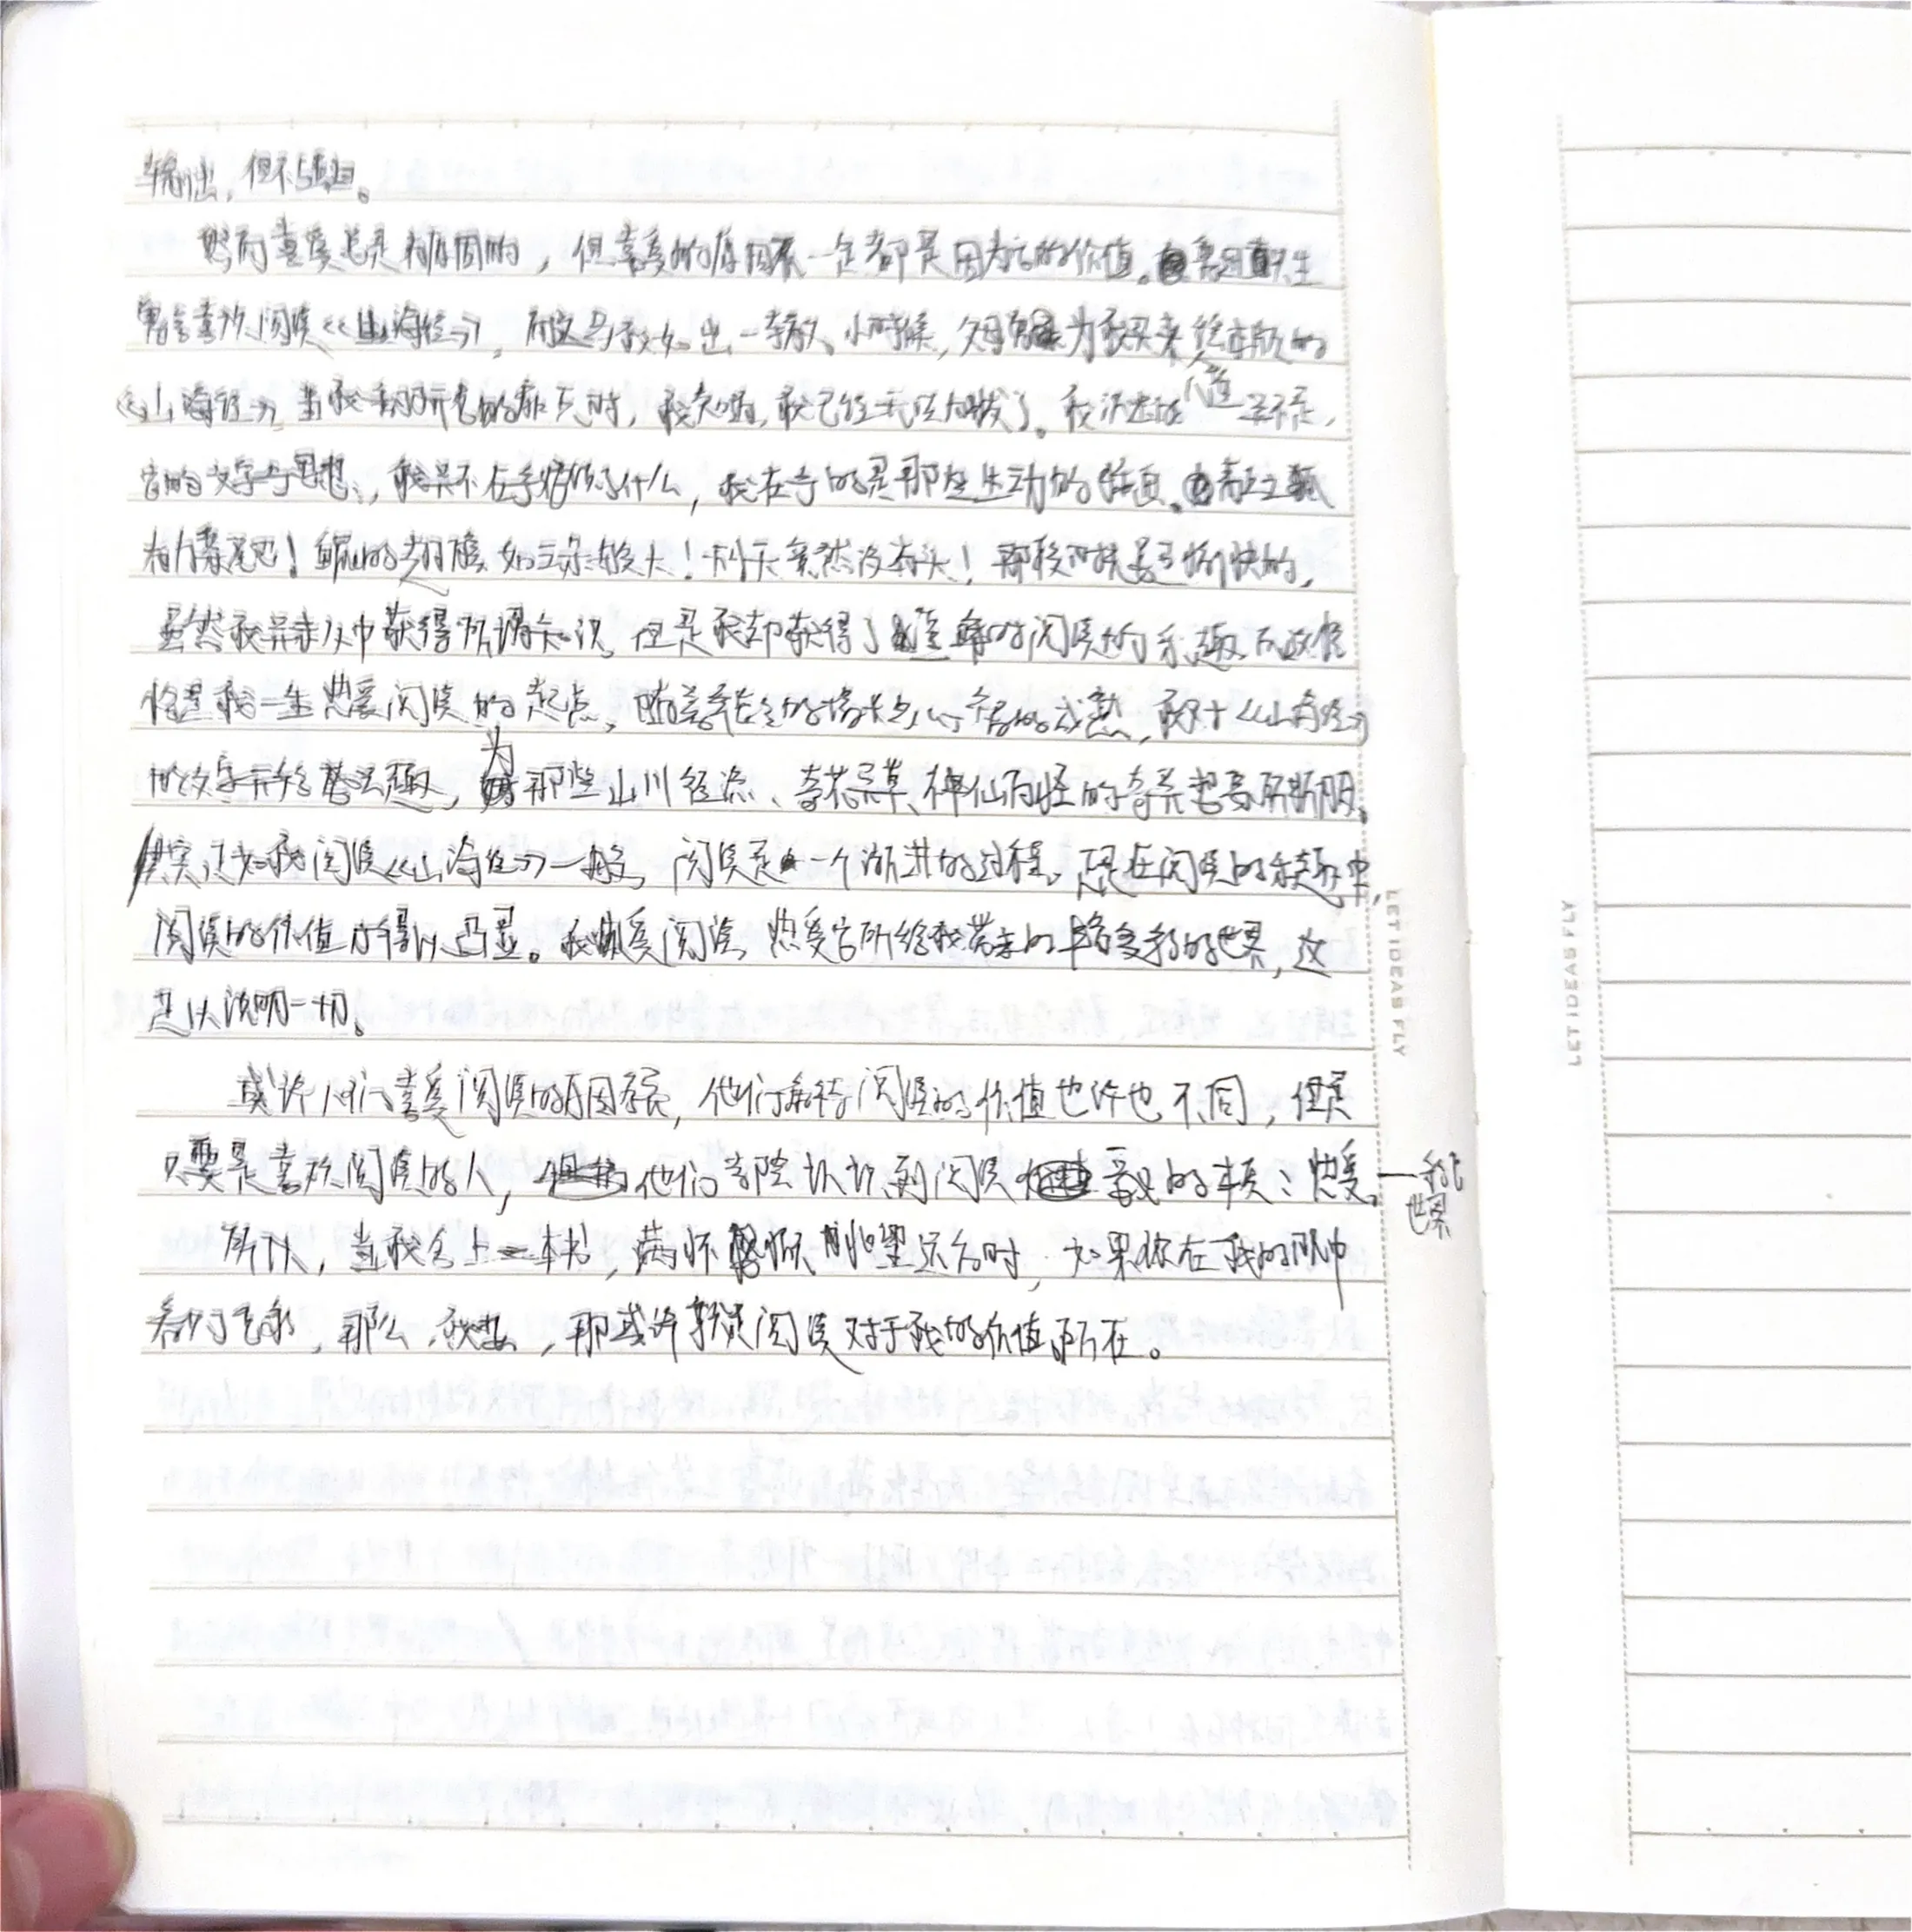 输出，但不强迫。
然而喜爱总是有原因的，但喜爱的原因不一定都是因为它的价值。鲁迅先生
曾言喜欢阅读《山海经》，而这与我如出一辙。小时候，父母为我买来绘本版的
《山海经》，当我翻开它的第一页时，我知道，我已经无法自拔了。我沉迷的并不是
它的文字与思想，我并不在乎它讲了什么，我在乎的是那些生动的插画。
有九条尾巴！的翅膀如云朵般大！刑天竟然没有头！那段时光是愉快的，
虽然我并未从中获得所谓知识，但是我却获得了的阅读的乐趣，而这
恰是我一生热爱阅读的起点，随着年龄的增长与心智的成熟，我对于《山海经》
的文字开始感兴趣，为那些山川径流、奇花异草、神仙百怪的奇异哲意所折服。
其实正如我阅读《山海经》一般，阅读是一个渐进的过程。在阅读的乐趣中，
阅读的价值才得以凸显。我热爱阅读，热爱它所给我带来的丰富多彩的世界，这
足以说明一切。
或许人们喜爱阅读的原因不同，他们看待阅读的价值也许也不同，但是
只要是喜欢阅读的人，他们都能认识到阅读意义的本真：热爱。——我
世界
所以，当我合上一本书，满怀憧憬、眺望远方时，如果你在我的眼中
看到了色彩，那么，我想，那或许就是阅读对于我的价值所在。
LET IDEAS FLY
LET IDEAS FLY